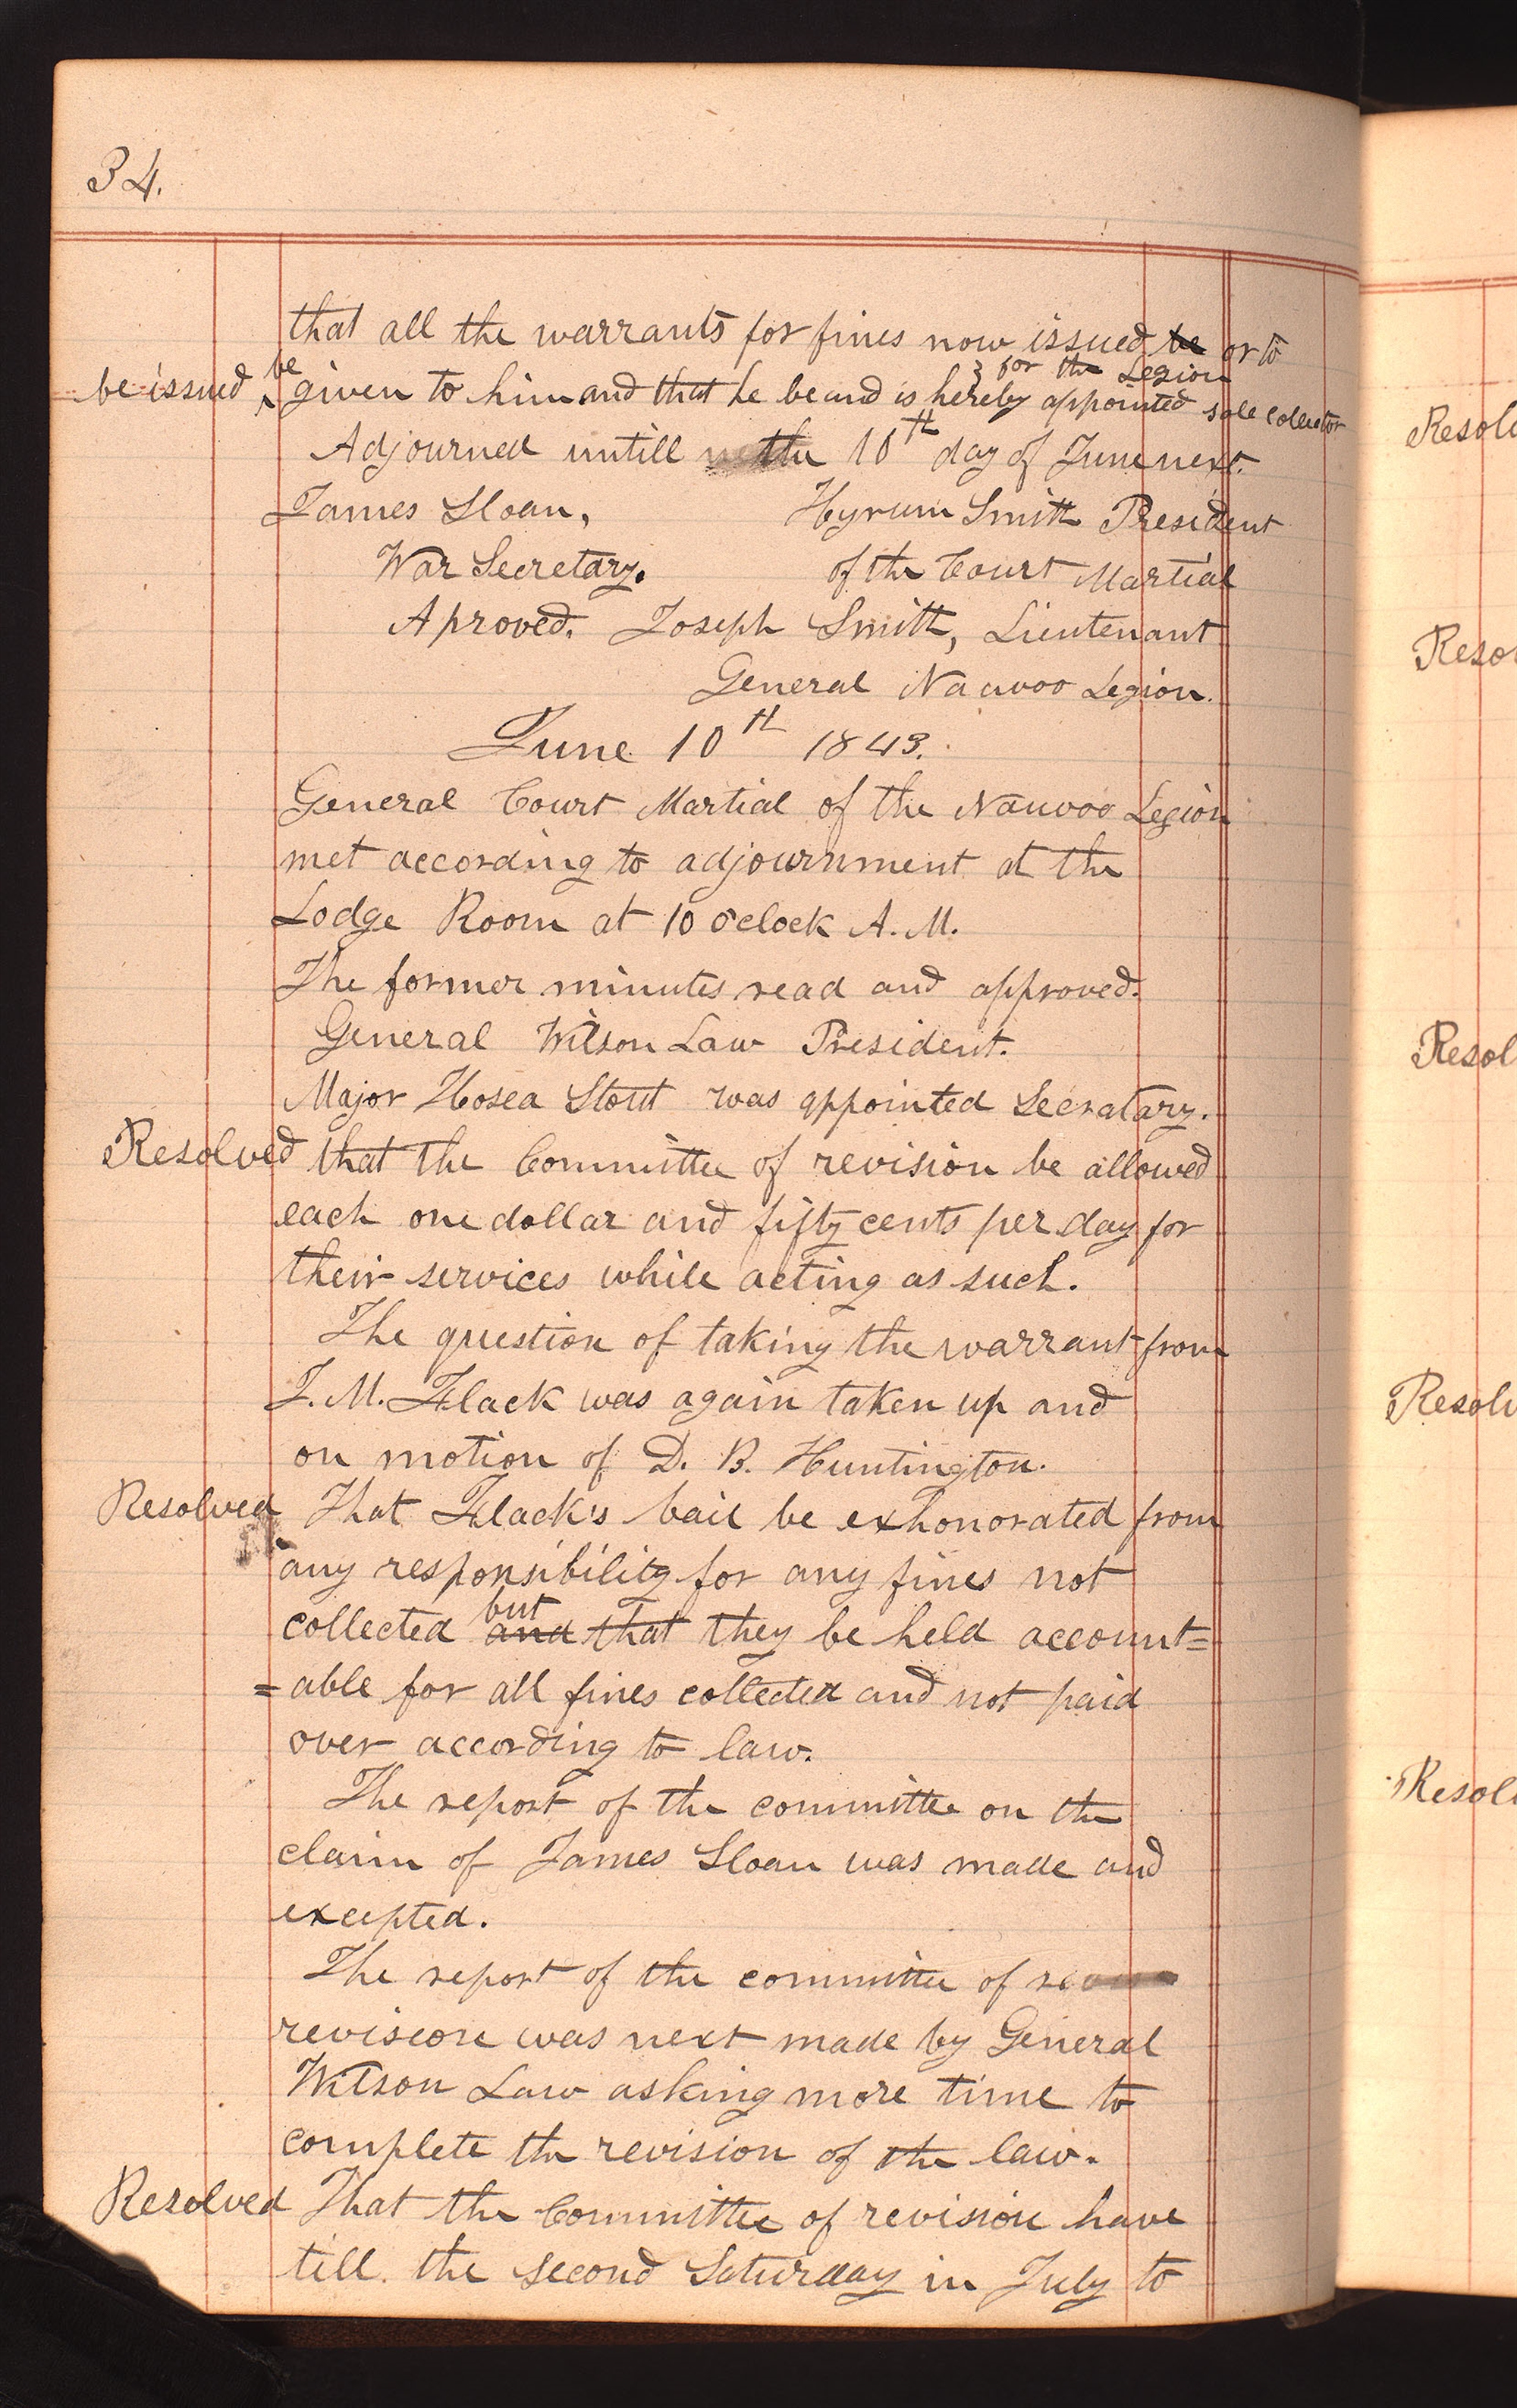 34.
that all the warrants for fines now issued be or to
be issued be given to him and that he be and is hereby appointed sole collector
for the Legion
Adjourned untill the 10th day of June next.
James Sloan, Hyrum Smith President
War Secretary. of the Court Martial
Aproved. Joseph Smith, Lieutenant
General Nauvoo Legion.
June 10th 1843.
General Court Martial of the Nauvoo Legion
met according to adjournment at the
Lodge Room at 10 o'clock A.M.
The former minutes read and approved.
General Wilson Law President.
Major Hosea Stout was appointed Secratary.
Resolved that the Committee of revision be allowed
each one dollar and fifty cents per day for
their services while acting as such.
The question of taking the warrant from
J. M. Flack was again taken up and
on motion of D. B. Huntington.
Resolved That Flack's bail be exhonorated from
any responsibility for any fines not
collected and that but they be held account=
=able for all fines collected and not paid
over according to law.
The report of the committee on the
claim of James Sloan was made and
excepted.
The report of the committee of
revision was next made by General
Wilson Law asking more time to
complete the revision of the law.
Resolved That the Committee of revision have
till the second Saturday in July to
Resol
Reso
Resol
Resol
Resol